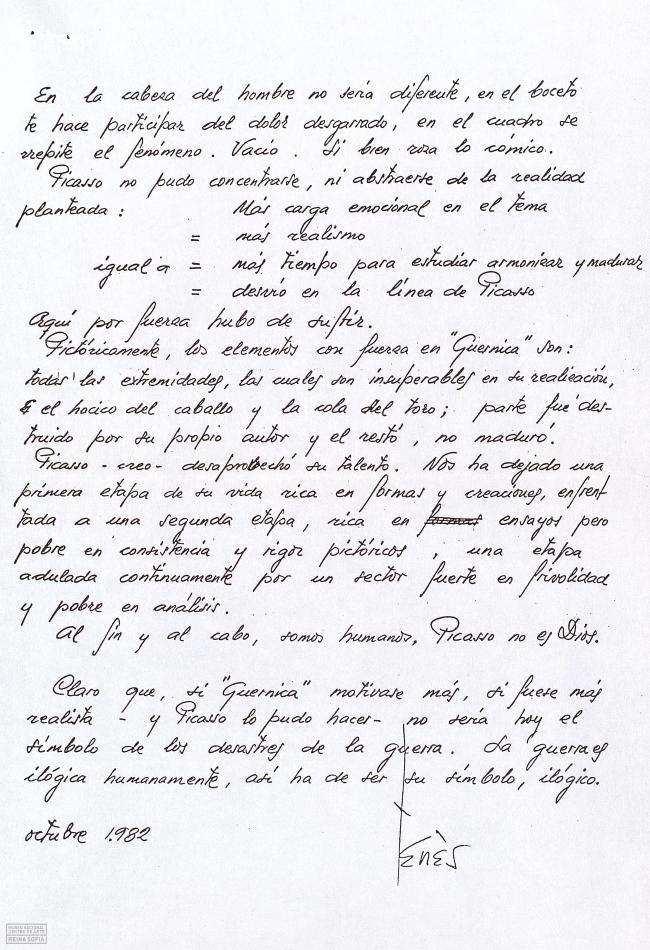 En la cabeza del hombre no sería diferente, en el boceto
te hace participar del dolor desgarrado, en el cuadro se
repite el fenómeno. Vacío. Si bien roza lo cómico.
Picasso no pudo concentrarse, ni abstraerse de la realidad
planteada: Más carga emocional en el tema
= más realismo
igual a = más tiempo para estudiar armonizar y madurar
= desvío en la línea de Picasso
Aquí por fuerza hubo de sufrir.
Pictóricamente, los elementos con fuerza en "Guernica" son:
todas las extremidades, las cuales son insuperables en su realización,
el hocico del caballo y la cola del toro; parte fué des-
truido por su propio autor y el resto, no maduró.
Picasso - creo - desaprobechó su talento. Nos ha dejado una
primera etapa de su vida rica en formas y creaciones, enfren
tada a una segunda etapa, rica en formas ensayos pero
pobre en consistencia y rigor pictóricos, una etapa
adulada continuamente por un sector fuerte en frivolidad
y pobre en análisis.
Al fin y al cabo, somos humanos, Picasso no es Dios.
Claro que, si "Guernica" motivase más, si fuese más
realista - y Picasso lo pudo hacer - no sería hoy el
símbolo de los desastres de la guerra. La guerra es
ilógica humanamente, así ha de ser su símbolo, ilógico.
octubre 1.982
Enès
MUSEO NACIONAL
CENTRO DE ARTE
REINA SOFIA